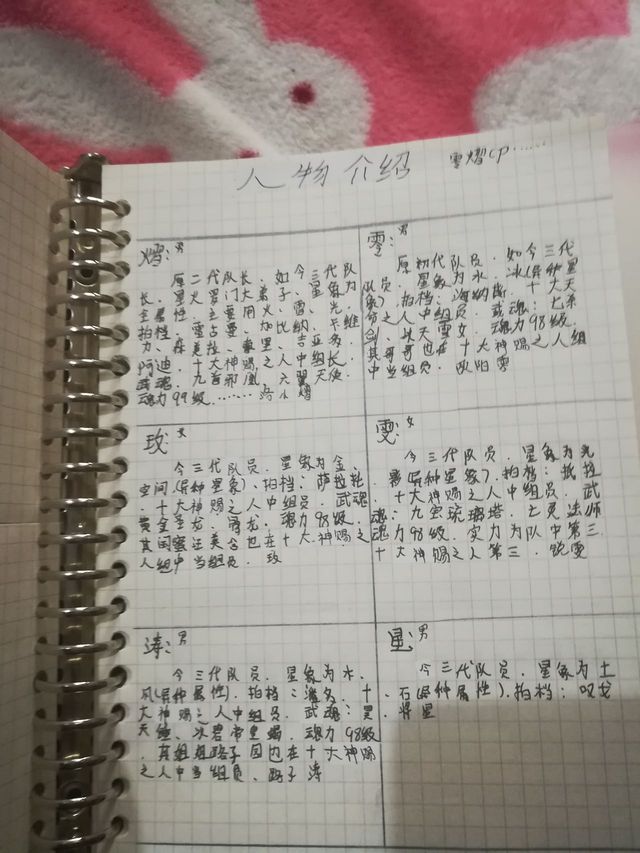 人物介绍
零熠cp……
熠:男
原二代队长、如今三代队
长、星火宫门大弟子、星象为
全属性、主要用火、雷、光、
拍档:雷古曼、加比纳、卡维
力、森美拉、豪里、吉亚多、
阿迪、十大神赐之人中组长、
武魂、九首邪凰、六翼天使、
魂力99级………
小熠
零:男
原初代队员、如今三代
队员、星象为水、冰(异种星
象)、拍档:海纳斯、十大天
分之人中组员、武魂:七杀
剑、妖天雪女、魂力98级、
其哥哥也在十大神赐之人组
中当组员、欧阳零
玫:女
今三代队员、星象为金、
空间(异种星象)、拍档:萨拉
、十大神赐之人中组员、武魂
黄金圣龙、骨龙、魂力98级、
其闺蜜汪美含也在十大神赐之
人组中当组员、玫
雯:女
今三代队员、星象为光
(异种星象)、拍档:
十大神赐之人中组员、武
魂:九宝琉璃塔、七灵法师
魂力98级、实力为队中第三、
十大神赐之人第三、雯
涛:男
今三代队员、星象为木、
风(异种属性)、拍档:十
大神赐之人中组员、武魂:昊
天锤、冰碧帝皇蝎、魂力98级
、其姐姐路子因也在十大神赐
之人中当组员、路子涛
星:男
今三代队员、星象为土
、石(异种属性)、拍档:戈
、将星